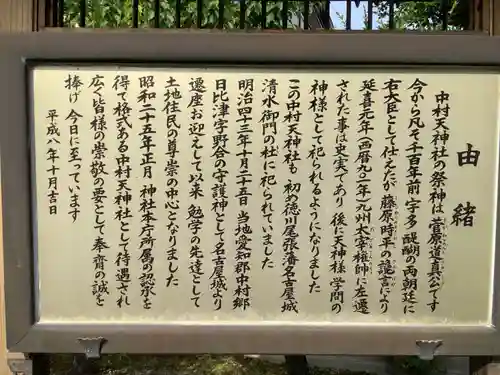 由緒
中村天神社の祭神は菅原道真公です
今から凡そ千百年前 宇多 醍醐の両朝廷に
右大臣として仕えたが 藤原時平の讒言により
延喜元年(西暦九〇一年)九州太宰権帥に左遷
された事は史実であり 後に天神様 学問の
神様として祀られるようになりました
この中村天神社も 初め徳川尾張藩名古屋城
清水御門の杜に祀られていました
明治四十三年十月二十五日 当地愛知郡中村郷
日比津字野合の守護神として名古屋城より
遷座お迎えして以来 勉学の先達として
土地住民の尊崇の中心となりました
昭和二十五年正月 神社本庁所属の認承を
得て格式ある中村天神社として待遇され
広く皆様の崇敬の要として奉齋の誠を
捧げ 今日に至っています
平成八年十月吉日